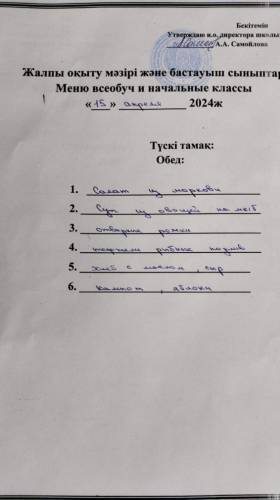 Бекітемін
Утверждаю и.о. директора школы
А.А. Самойлова
Жалпы оқыту мәзірі және бастауыш сыныптар
Меню всеобуч и начальные классы
«15» апреля 2024ж
Түскі тамақ:
Обед:
1. Салат из моркови
2. Суп из овощей на мясб
3. отварные рожки
4. тефтели рыбные
5. хлеб с маслом, сыр
6. компот, яблоки